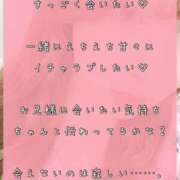 すっごく会いたい♡
一緒にえちえち甘々に
イチャラブしたい♡
お兄様に会いたい気持ち
ちゃんと伝わってるかなる
会えないのは寂しい……。